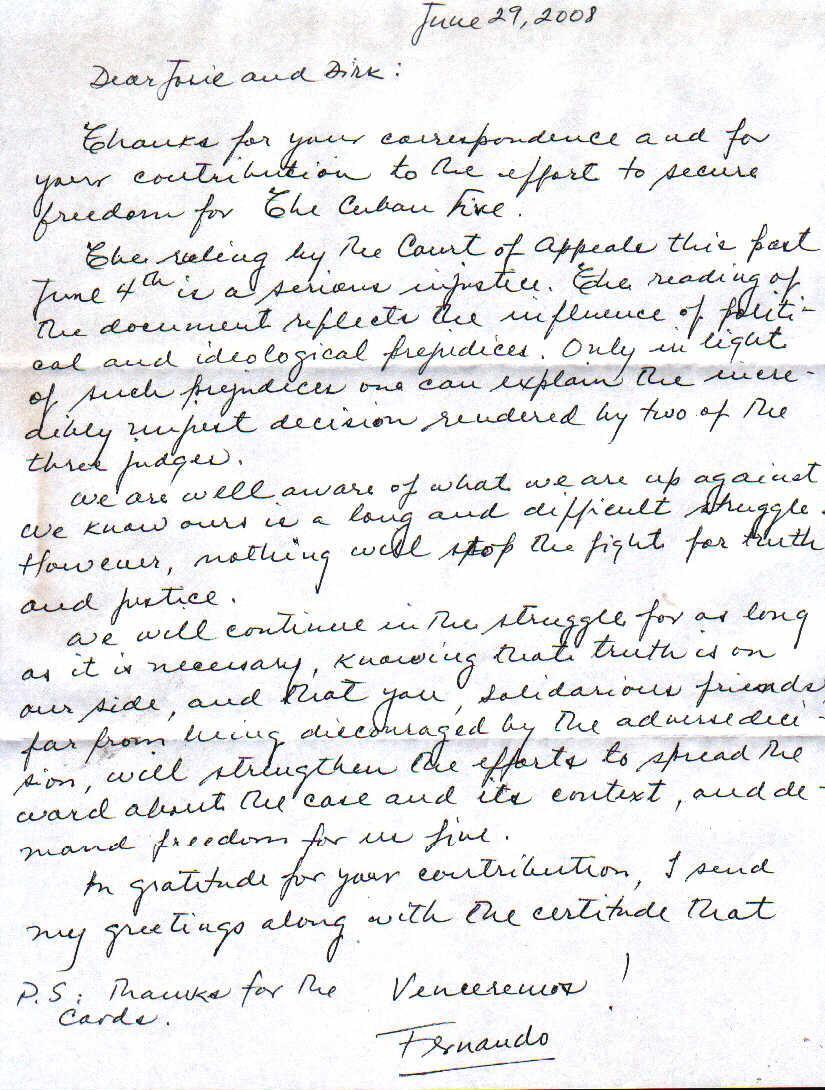 June 29, 2008
Dear Josie and Dirk:
Thanks for your correspondence and for
your contribution to the effort to secure
freedom for The Cuban Five.
The ruling by the Court of Appeals this past
June 4th is a serious injustice. The reading of
the document reflects the influence of politi-
cal and ideological prejudices. Only in light
of such prejudices one can explain the incre-
dibly unjust decision rendered by two of the
three judges.
We are well aware of what we are up against
We know ours is a long and difficult struggle.
However, nothing will stop the fight for truth
and justice.
We will continue in the struggle for as long
as it is necessary, knowing that truth is on
our side, and that you, solidarious friends,
far from being discouraged by the adverse deci-
sion, will strengthen the efforts to spread the
word about the case and its context, and de-
mand freedom for us five.
In gratitude for your contribution, I send
my greetings along with the certitude that
Venceremos!
Fernando
P.S: Thanks for the
Cards.